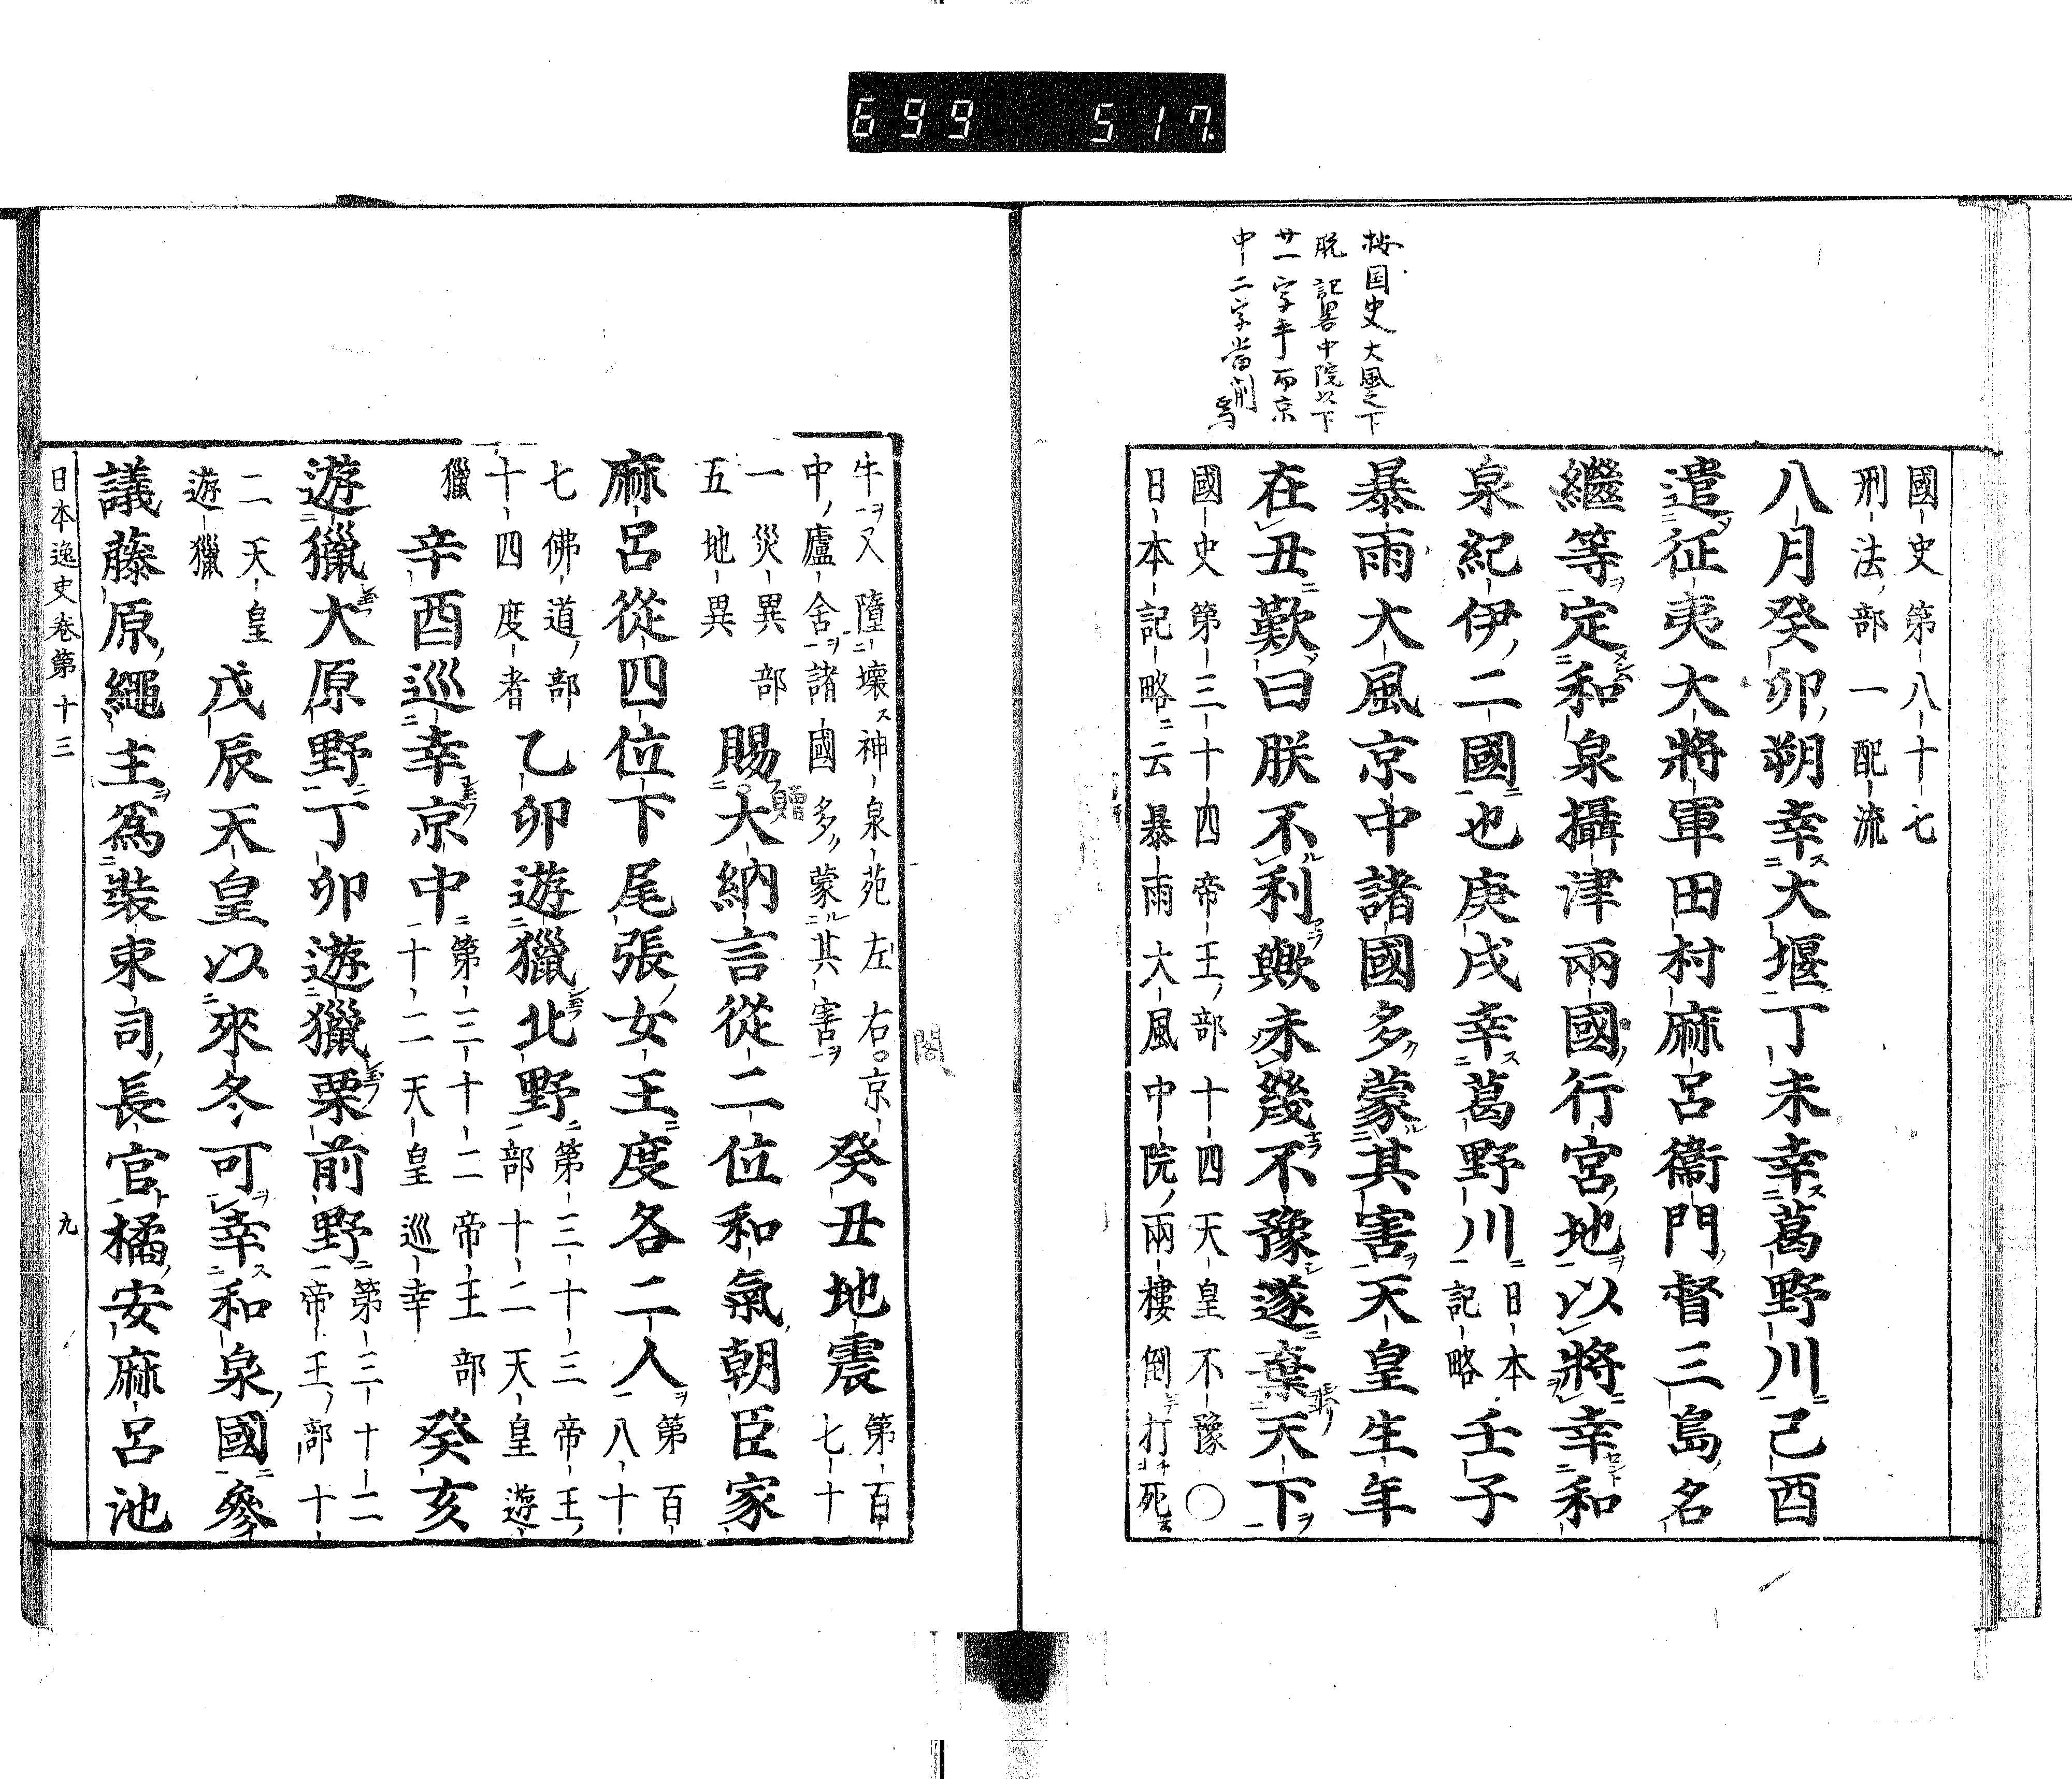 699 517
按国史大風之下
脱記畧中院以下
廿一字乎而京
中二字當削
焉
國史第八十七
刑法部一配流
八月癸卯朔幸大堰丁未幸葛野川己酉
遣征夷大將軍田村麻呂衞門督三島名
繼等定和泉攝津兩國行宮地以將幸和
泉紀伊二國也庚戌幸葛野川日本記略壬子
暴雨大風京中諸國多蒙其害天皇生年
在丑歎曰朕不利歟未幾不豫遂棄天下
國史第三十四帝王部十四天皇不豫〇
日本記略云暴雨大風中院兩樓倒打死
牛又墮壞神泉苑左右京
中廬舍諸國多蒙其害癸丑地震第百七十
一災異部
五地異賜大納言從二位和氣朝臣家
麻呂從四位下尾張女王度各二人第百八十
七佛道部
十四度者乙卯遊獵北野第三十三帝王
部十二天皇遊
獵辛酉巡幸京中第三十二帝王部
十二天皇巡幸癸亥
遊獵大原野丁卯遊獵栗前野第三十二
帝王部十
二天皇
遊獵戊辰天皇以來冬可幸和泉國參
議藤原繩主爲裝束司長官橘安麻呂池
日本逸史卷第十三 九
閣
贈